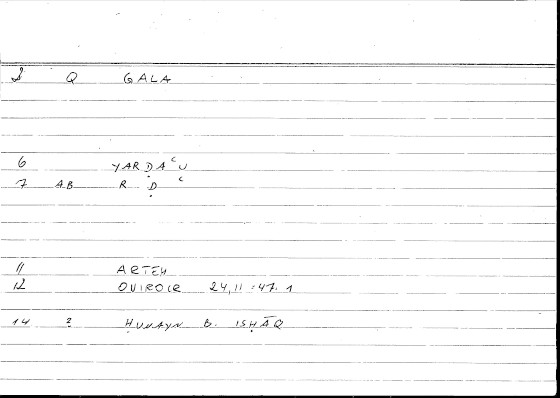 2 Q GALA
6 YARḌAʿU
7 AB R Ḍ ʿ
11 ARTEM
12 OVIROIR 24,11:47.1
14 ? ḤUNAYN B. ISḤĀQ